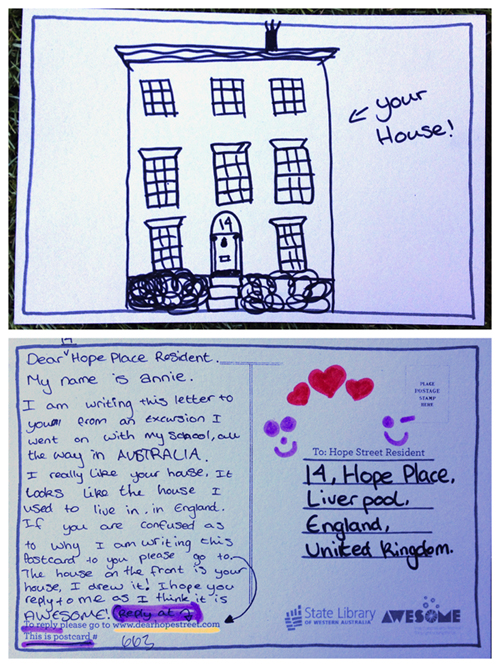 your
House!
14
14
Dear Hope Place Resident.
My name is annie.
I am writing this letter to
you from an excursion I
went on with my school, all
the way in AUSTRALIA.
I really like your house, It
looks like the house I
used to live in. in England.
If you are confused as
to why I am writing this
Postcard to you please go to.
The house on the front is your
house, I drew it! I hope you
reply to me as I think it is
AWESOME! Reply at
To reply please go to www.dearhopestreet.com
This is postcard # 663
PLACE
POSTAGE
STAMP
HERE
To: Hope Street Resident
14, Hope Place,
Liverpool,
England,
United Kingdom.
State Library
OF WESTERN AUSTRALIA
AWESOME